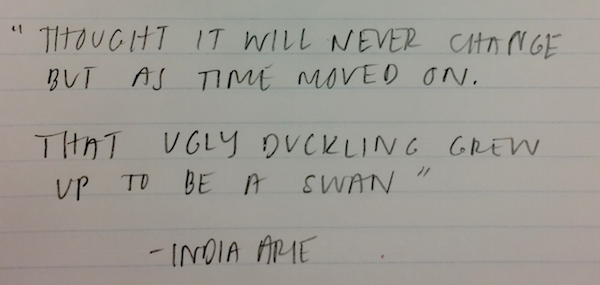 " THOUGHT IT WILL NEVER CHANGE
BUT AS TIME MOVED ON.
THAT UGLY DUCKLING GREW
UP TO BE A SWAN "
- INDIA ARIE